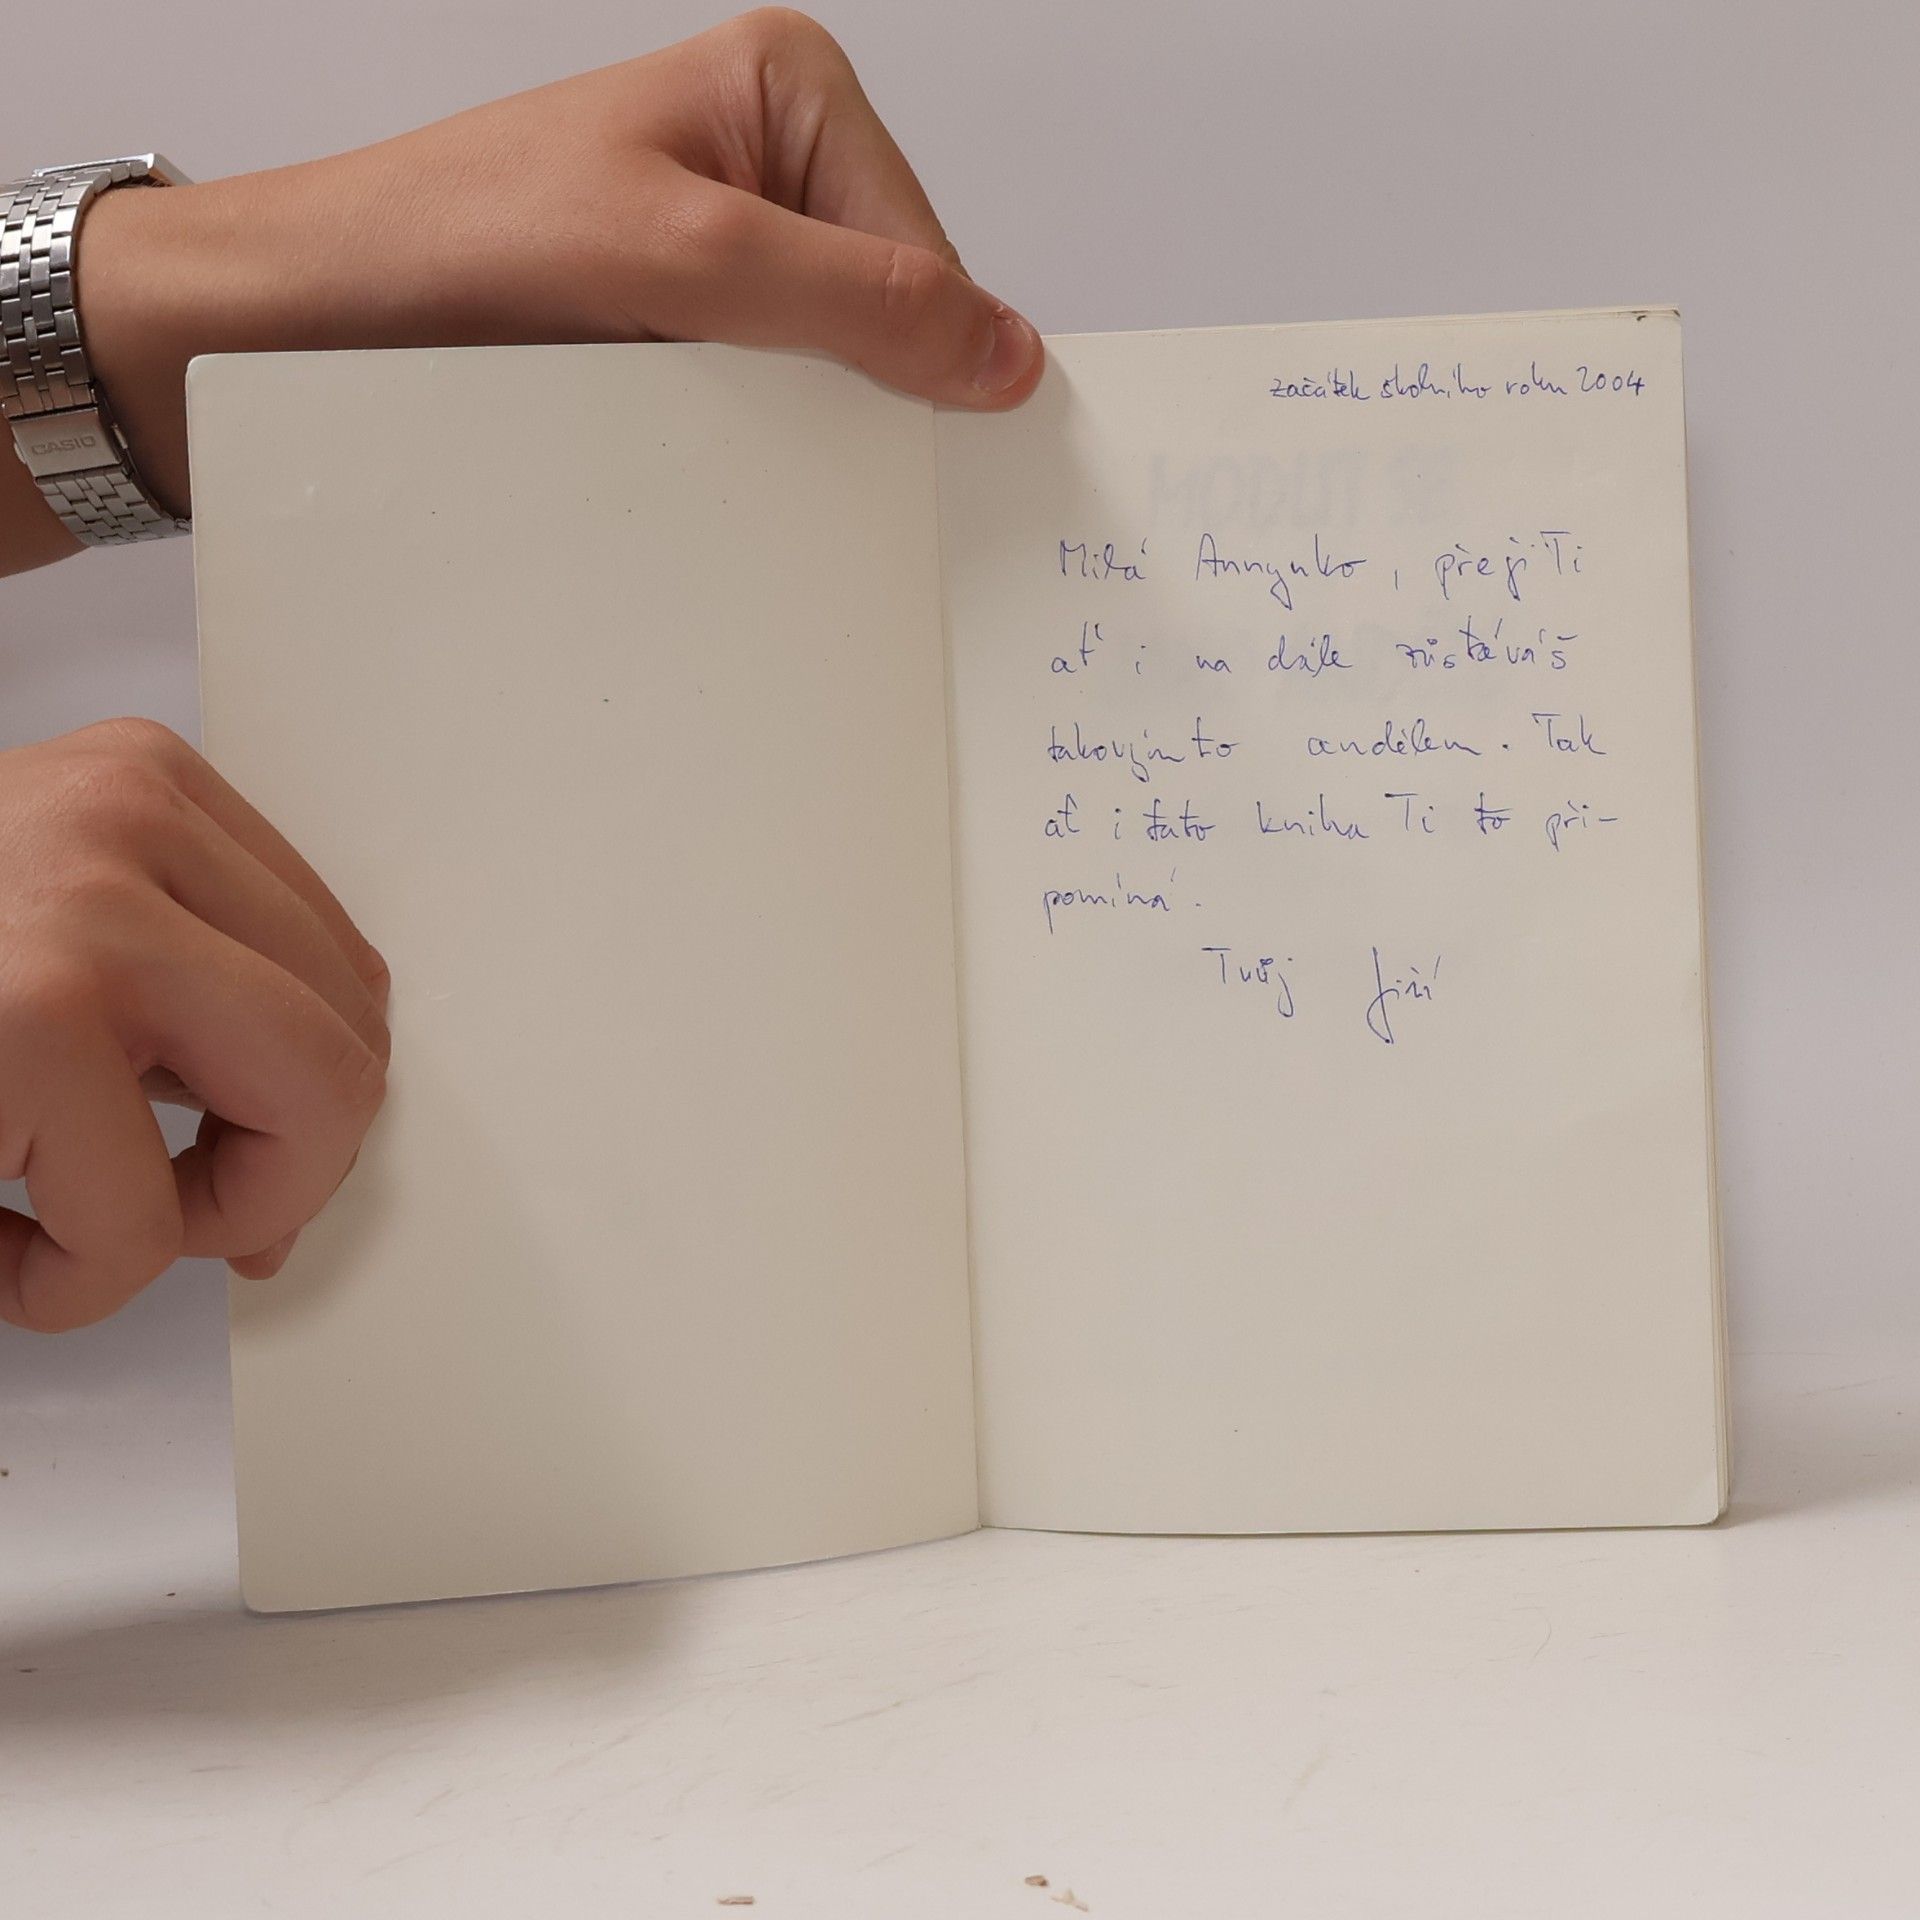 CASIO
začátek školního roku 2004
Milá Annynko, přeji Ti
ať i na dále zůstáváš
takovýmto andělem. Tak
ať i tato kniha Ti to při-
pomíná.
Tvůj Jiří